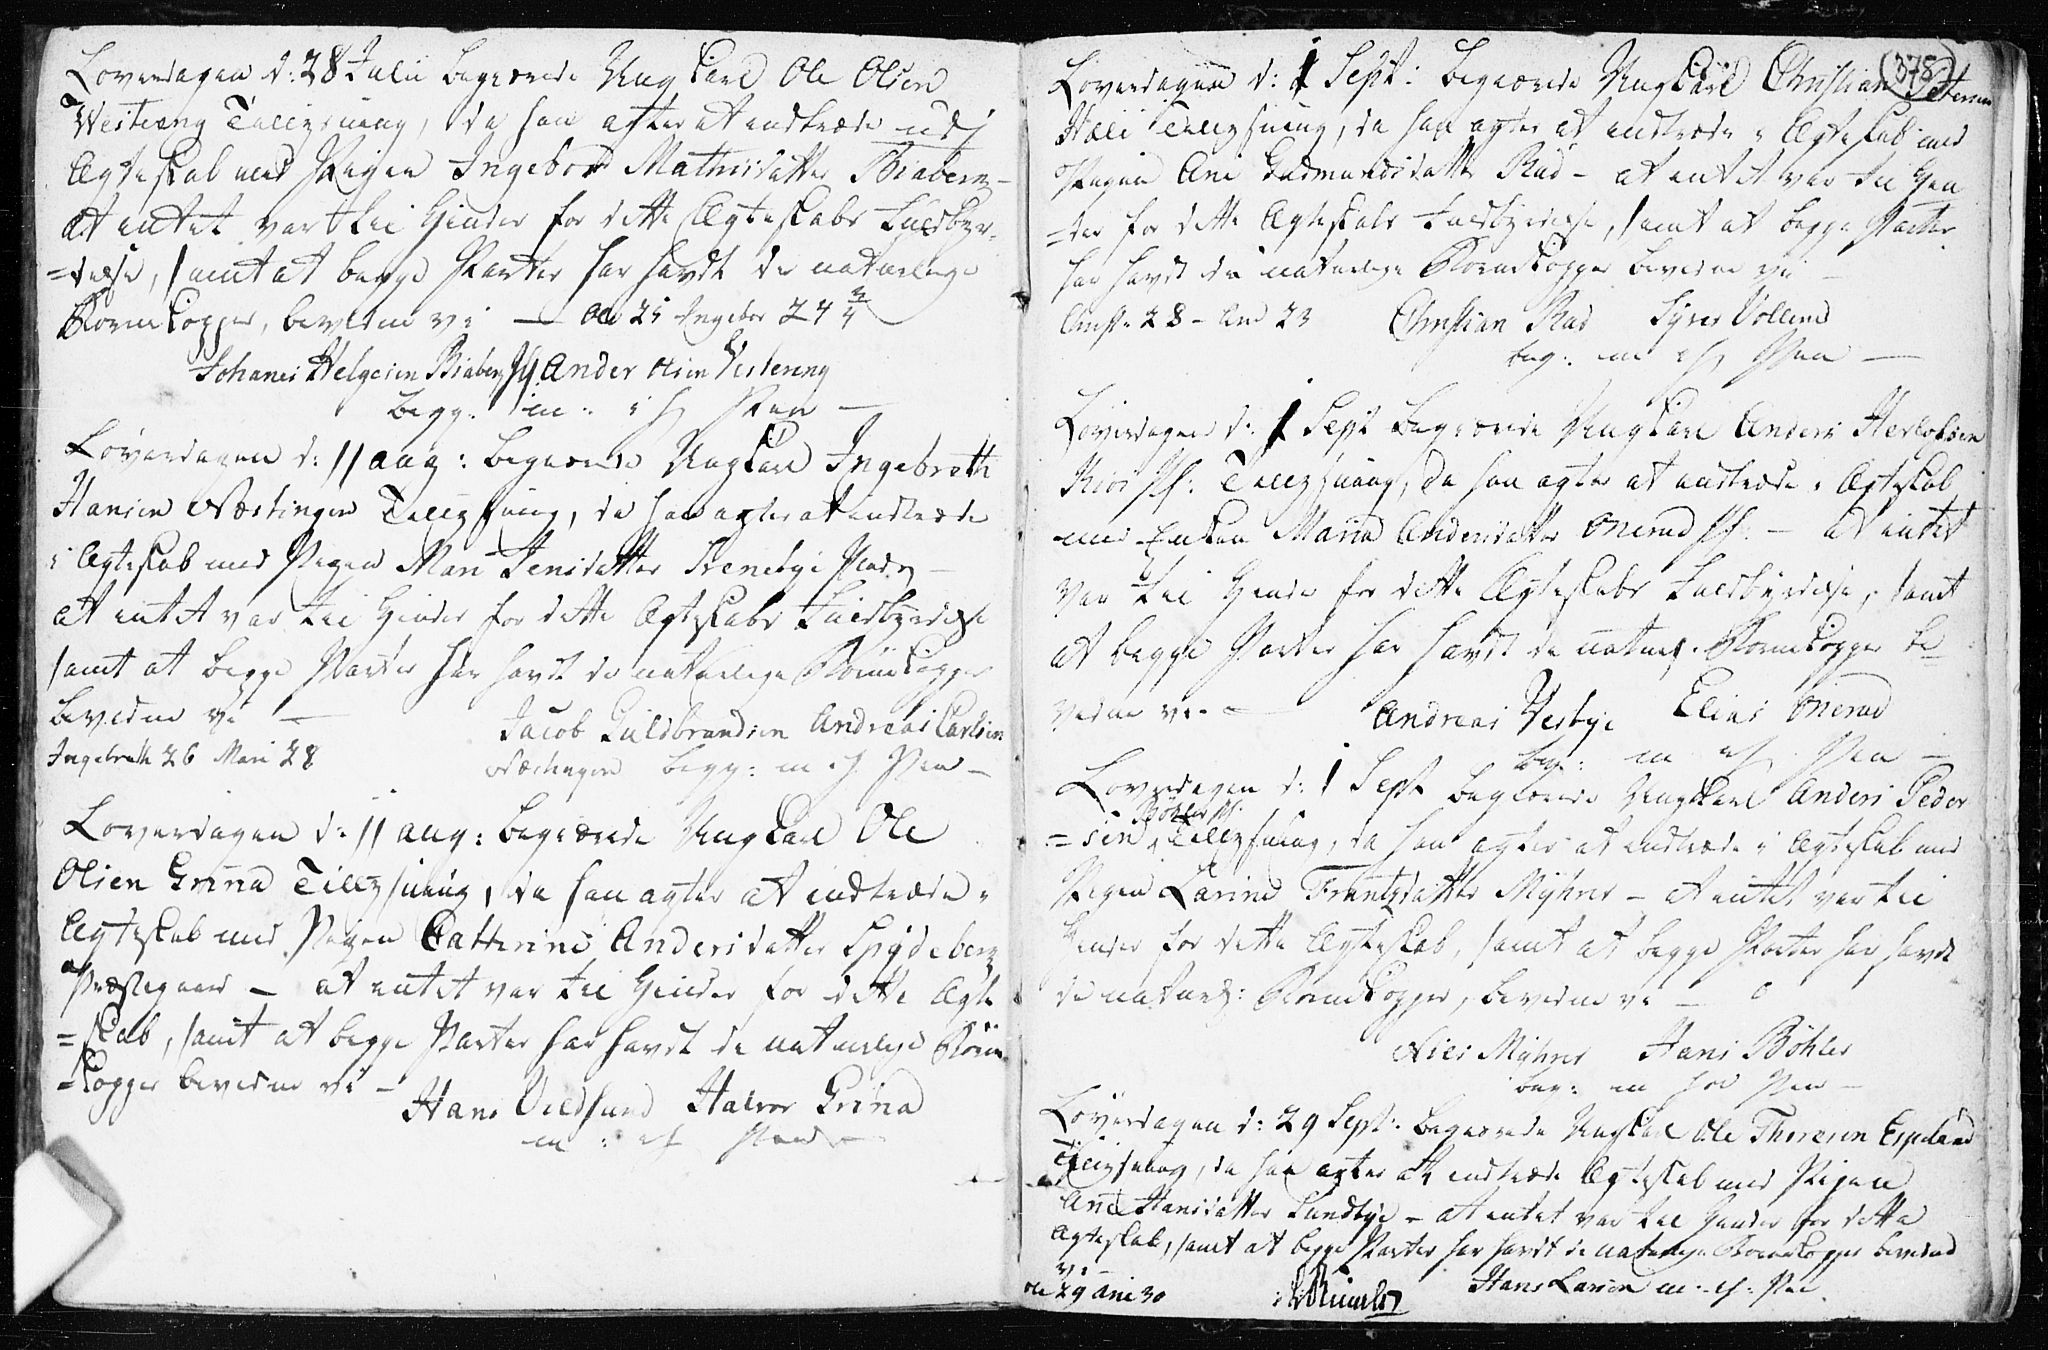 Løverdagen d: 28 Julii begiærede Ung Karl Ole Olsen
Westeng Tillysning, da han agter at indtræde udj
Ægteskab med Pigen Ingebor Mathisdatter Biaberg –
at intet var til Hinder for dette Ægteskabs Fuldbyr-
=delse, samt at begge Parter har havdt de naturlige
Børnekopper, bevidne vi — Ole 25 Ingebor 24 3/4
Johanes Helgesen Biaberg Anders Olsen Vestereng
begge: m: i h Pen —
Løverdagen d: 11 aug: begiærede Ungkarl Ingebreth
Hansen Næstingen Tillysning, da han agter at indtræde
i Ægteskab med Pigen Mari Jensdatter Svenebye
at intet var til Hinder for dette Ægteskabs Fuldbyrdelse
samt at begge Parter har havt de naturlige Børnekopper
bevidne vi —
Jacob Guldbrandsen Andreas Carlsen
Ingebreth 26 Mari 28
Næstingen begg: m. i h. Pen –
Løverdagen d: 11 aug: begiærede Ungkarl Ole
Olsen Grina Tillysning, da han agter at indtræde i
Ægteskab med Pigen Catterine Andersdatter Spydeberg
Præstegaard – at intet var til Hinder for dette Ægte
=skab, samt at begge Parter har havdt de naturlige Børne
=kopper bevidne vi –
Hans Vildsund Halvor Grina
m: i h Pend
378
Løverdagen d: 1 Sept: begiærede Ungkarl Christian Petersen
Hæli Tillysning, da han agter at indtræde i Ægteskab med
Pigen Ane Gudmundsdatter Rud – at intet var til Hin
=der for dette Ægteskabs Fuldbyrdelse, samt at begge Parter
har havdt de naturlige Børnekopper bevidne vi –
Christ: 28 – Ane 23 Christian Rud Syver Vollene
beg: m i h Pen —
Løverdagen d: 1 Sept begiærede Ungkarl Anders Herlofsen
Tillysning, da han agter at indtræde i Ægteskab
med Enken Maria Andersdatter Onerud – at intet
var til Hinder for dette Ægteskabs Fuldbyrdelse, samt
at begge Parter har havdt de naturl. Børnekopper be
vidne vi –
Andreas Vestbye Elias Onerud
beg: m i h Pen –
Løverdagen d: 1 Sept begiærede Ungkarl Anders Peder
Bøhler
=sen, Tillysning, da han agter at indtræde i Ægteskab med
Pigen Larine Frantzdatter Myhrer – at intet var til
Hinder for dette Ægteskab, samt at begge Parter har havdt
de naturl: Børnekopper, bevidne vi –
Niels Myhrer Hans Bøhler
beg: m hol Pen –
Løverdagen d: 29 Sept: begiærede Ungkarl Ole Thoresen Espeland
Tillysning, da han agter at indtræde Ægteskab med Pigen
Ane Hansdatter Sundbye – at intet var til Hinder for dette
Ægteskab, samt at begge Parter har havdt de naturlige Børnekopper bevidne
vi –
Ole 29 Ane 30
Hans Larsen m. i h: Pen